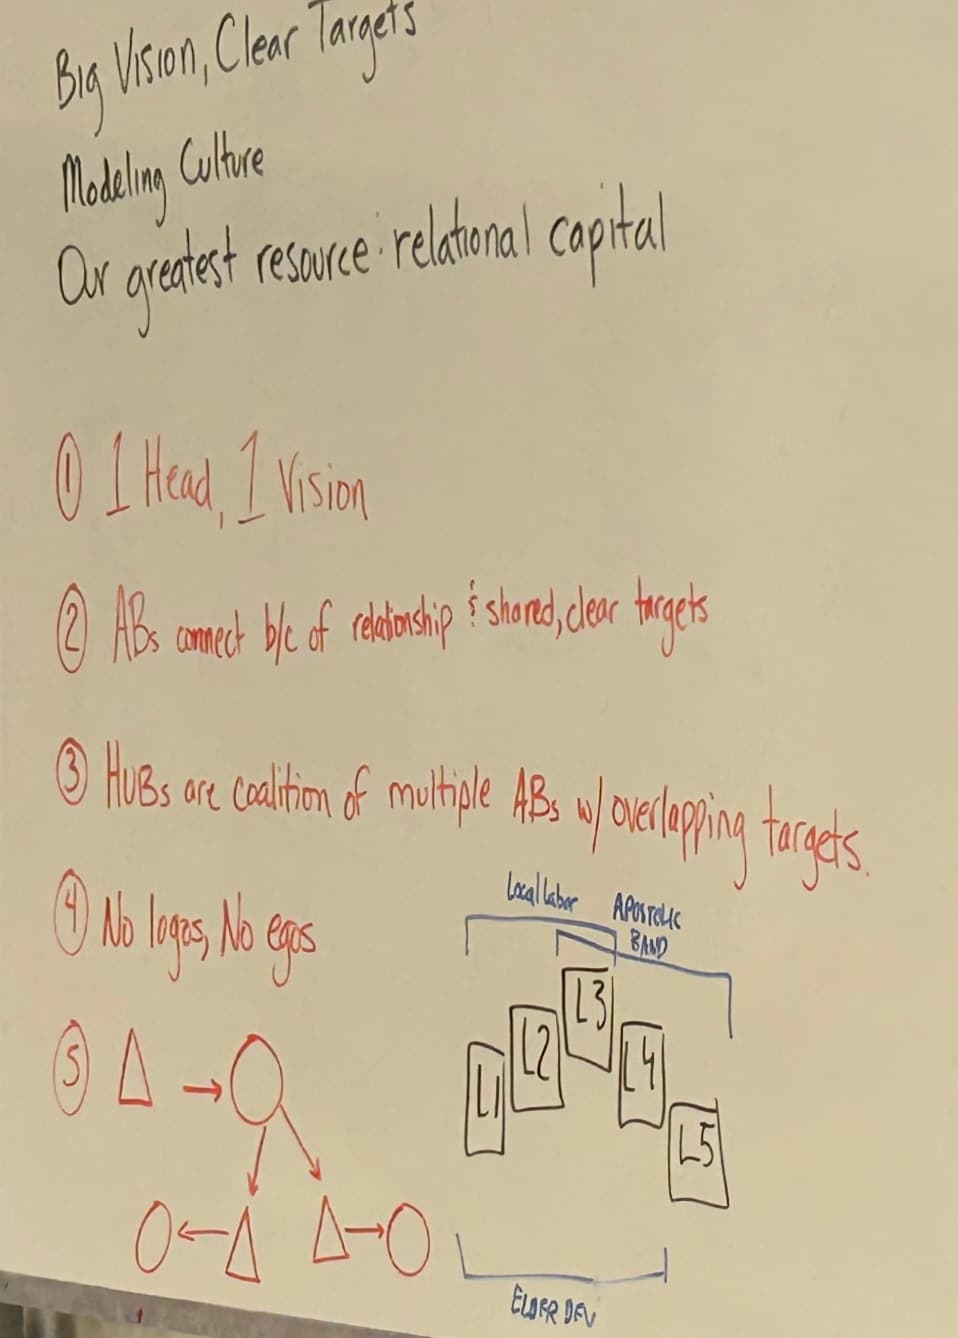 Big Vision, Clear Targets
Modeling Culture
Our greatest resource: relational capital
① 1 Head, 1 Vision
② ABs connect b/c of relationship & shared, clear targets
③ HUBs are coalition of multiple ABs w/ overlapping targets.
④ No logos, No egos
Local Labor
APOSTOLIC
BAND
⑤
L1
L2
L3
L4
L5
ELDER DEV